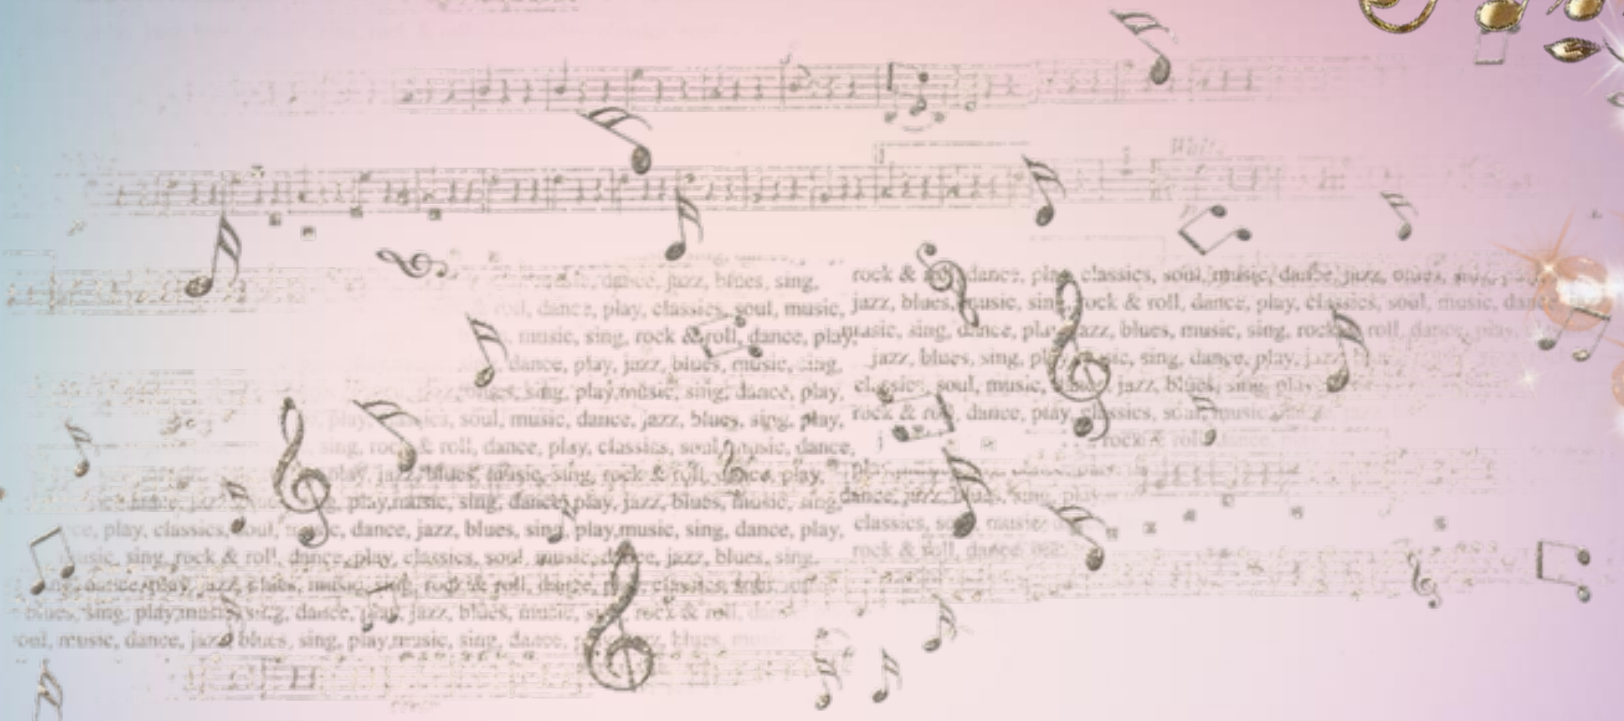 Waltz
dance, jazz, blues, sing,
roll, dance, play, classics, soul, music,
music, sing, rock & roll, dance, play,
dance, play, jazz, blues, music, sing,
sing, play,music, sing, dance, play,
play, classics, soul, music, dance, jazz, blues, sing, play,
sing, rock & roll, dance, play, classics, soul, music, dance,
play, jazz, blues, music, sing, rock & roll, dance, play,
play,music, sing, dance, play, jazz, blues, music, sing,
play, classics, soul, music, dance, jazz, blues, sing, play,music, sing, dance, play,
music, sing, rock & roll, dance, play, classics, soul, music, dance, jazz, blues, sing,
sing, dance, play, jazz, blues, music, sing, rock & roll, dance, play, classics, soul,
blues, sing, play,music, sing, dance, play, jazz, blues, music, sing, rock & roll,
soul, music, dance, jazz, blues, sing, play,music, sing, dance, play, jazz, blues, music
rock & roll, dance, play, classics, soul, music, dance, jazz, blues,
jazz, blues, music, sing, rock & roll, dance, play, classics, soul, music, dance
music, sing, dance, play, jazz, blues, music, sing, rock & roll, dance, play,
jazz, blues, sing, play,music, sing, dance, play, jazz
classics, soul, music, dance, jazz, blues, sing, play
rock & roll, dance, play, classics, soul, music
rock & roll, dance,
dance, jazz, blues, sing, play
classics, soul, music
rock & roll, dance,